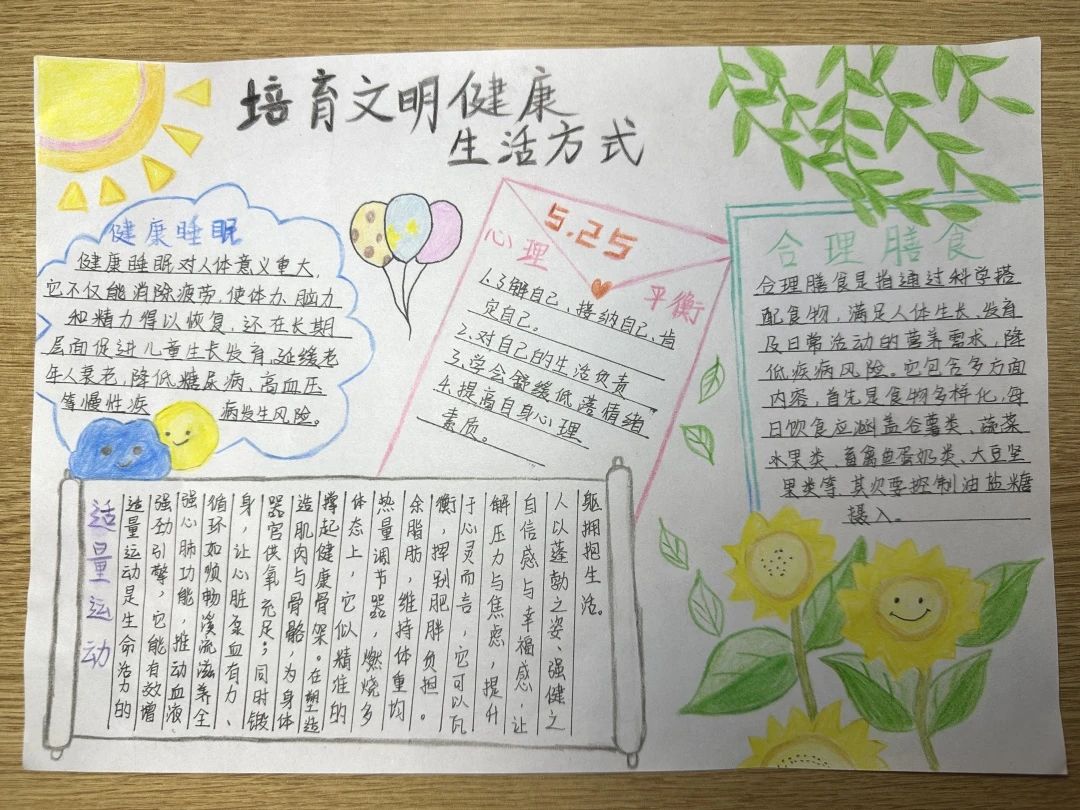 培育文明健康
生活方式
健康睡眠
健康睡眠对人体意义重大,
它不仅能消除疲劳,使体力、脑力
和精力得以恢复,还在长期
层面促进儿童生长发育,延缓老
年人衰老,降低糖尿病、高血压
等慢性疾
病发生风险。
5.25
心理
平衡
1.了解自己、接纳自己、肯
定自己。
2.对自己的生活负责
3.学会舒缓低落情绪
4.提高自身心理
素质。
合理膳食
合理膳食是指通过科学搭
配食物,满足人体生长、发育
及日常活动的营养需求,降
低疾病风险。它包含多方面
内容,首先是食物多样化,每
日饮食应涵盖谷薯类、蔬菜
水果类、畜禽鱼蛋奶类、大豆坚
果类等,其次要控制油盐糖
摄入。
适量运动
适量运动是生命活力的
强劲引擎,它能有效增
强心肺功能,推动血液
循环如顺畅溪流滋养全
身,让心脏泵血有力、
器官供氧充足;同时锻
造肌肉与骨骼,为身体
撑起健康骨架。在塑造
体态上,它似精准的
热量调节器,燃烧多
余脂肪,维持体重均
衡,挥别肥胖负担。
于心灵而言,它可以瓦
解压力与焦虑,提升
自信感与幸福感,让
人以蓬勃之姿、强健之
躯拥抱生活。